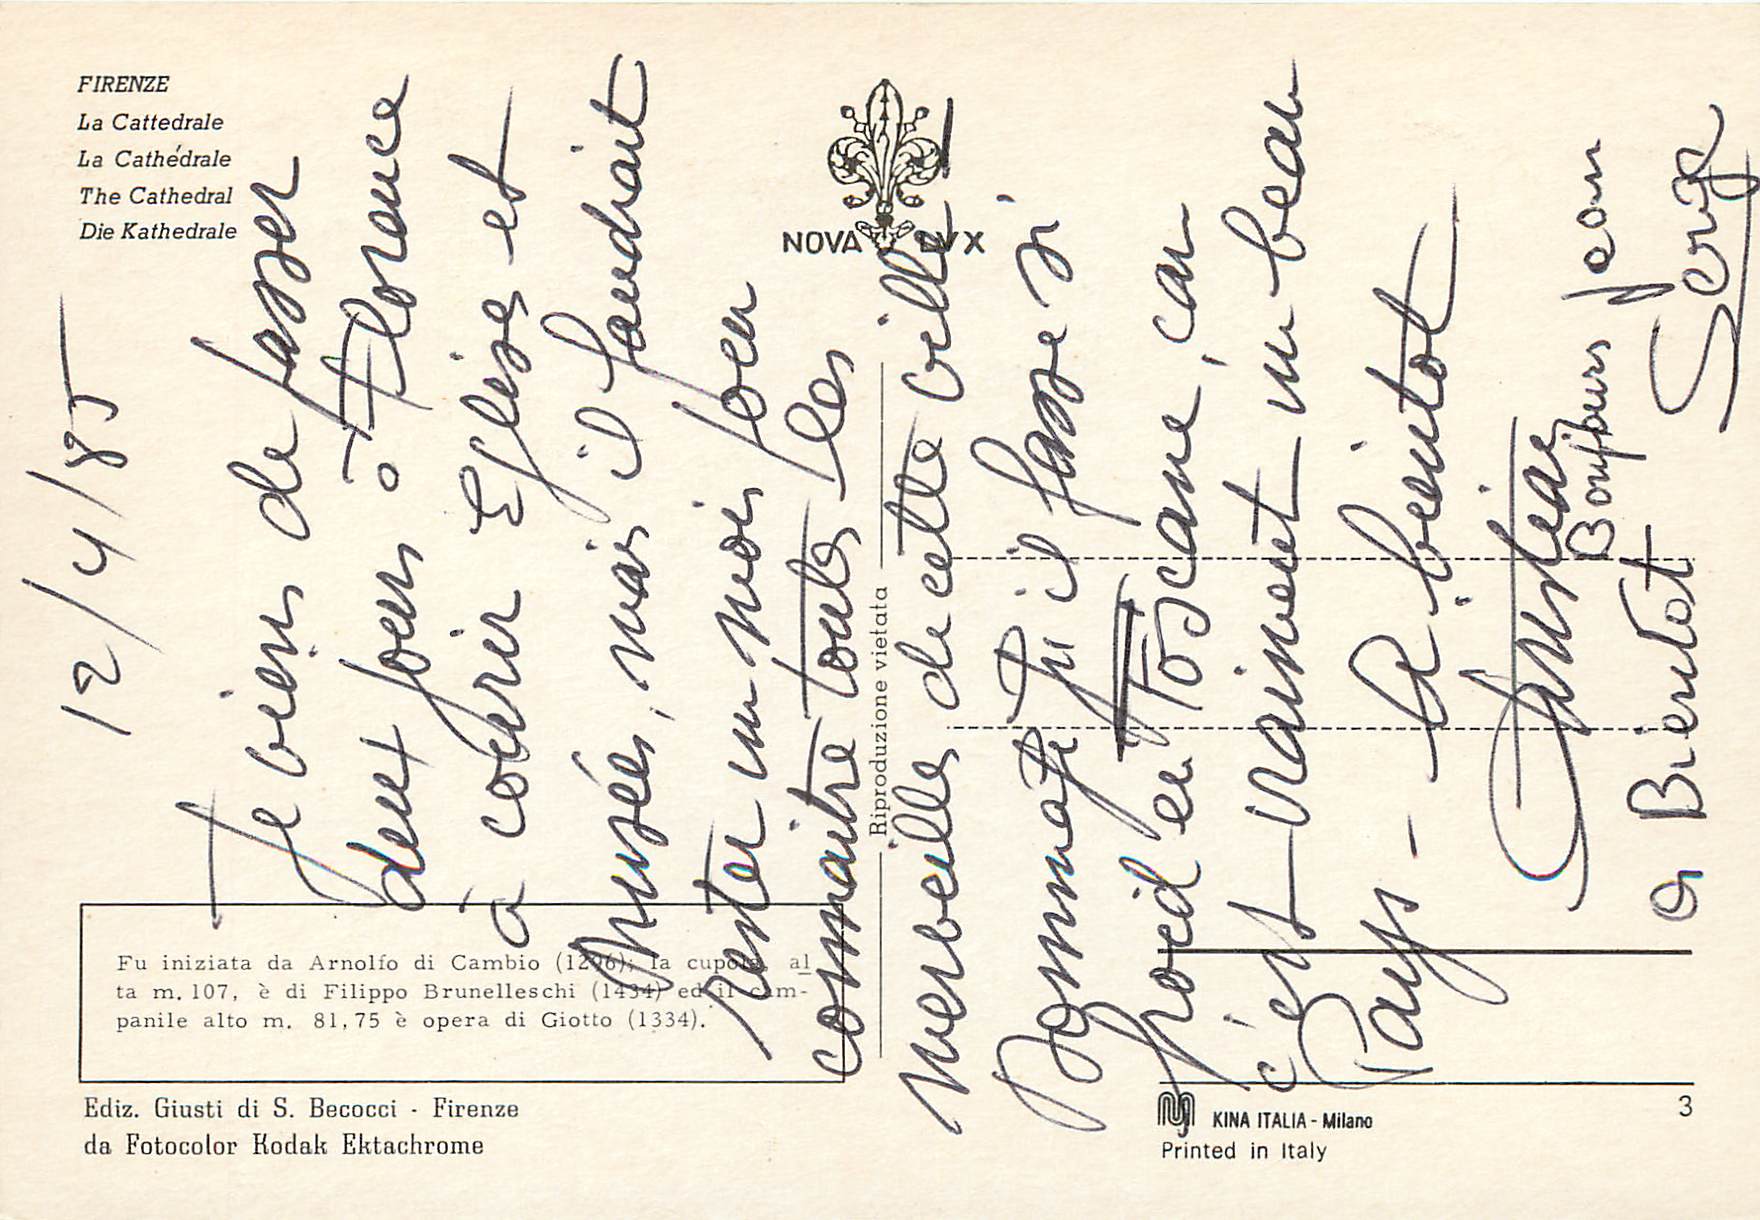 FIRENZE
La Cattedrale
La Cathédrale
The Cathedral
Die Kathedrale
NOVA LUX
12/4/85
Je viens de passer
deux jours à Florence
à courir Eglises et
Musées, mais il faudrait
rester un mois pour
connaitre toutes les
merveilles de cette ville
Dommage qu'il fasse si
froid en Toscane, car
c'est vraiment un beau
Pays - A bientot
Bonjours Jean
a Bientot Serge
Riproduzione vietata
Fu iniziata da Arnolfo di Cambio (1296); la cupola, al
ta m. 107, è di Filippo Brunelleschi (1434) ed il cam-
panile alto m. 81,75 è opera di Giotto (1334).
Ediz. Giusti di S. Becocci - Firenze
da Fotocolor Kodak Ektachrome
KINA ITALIA - Milano
Printed in Italy
3